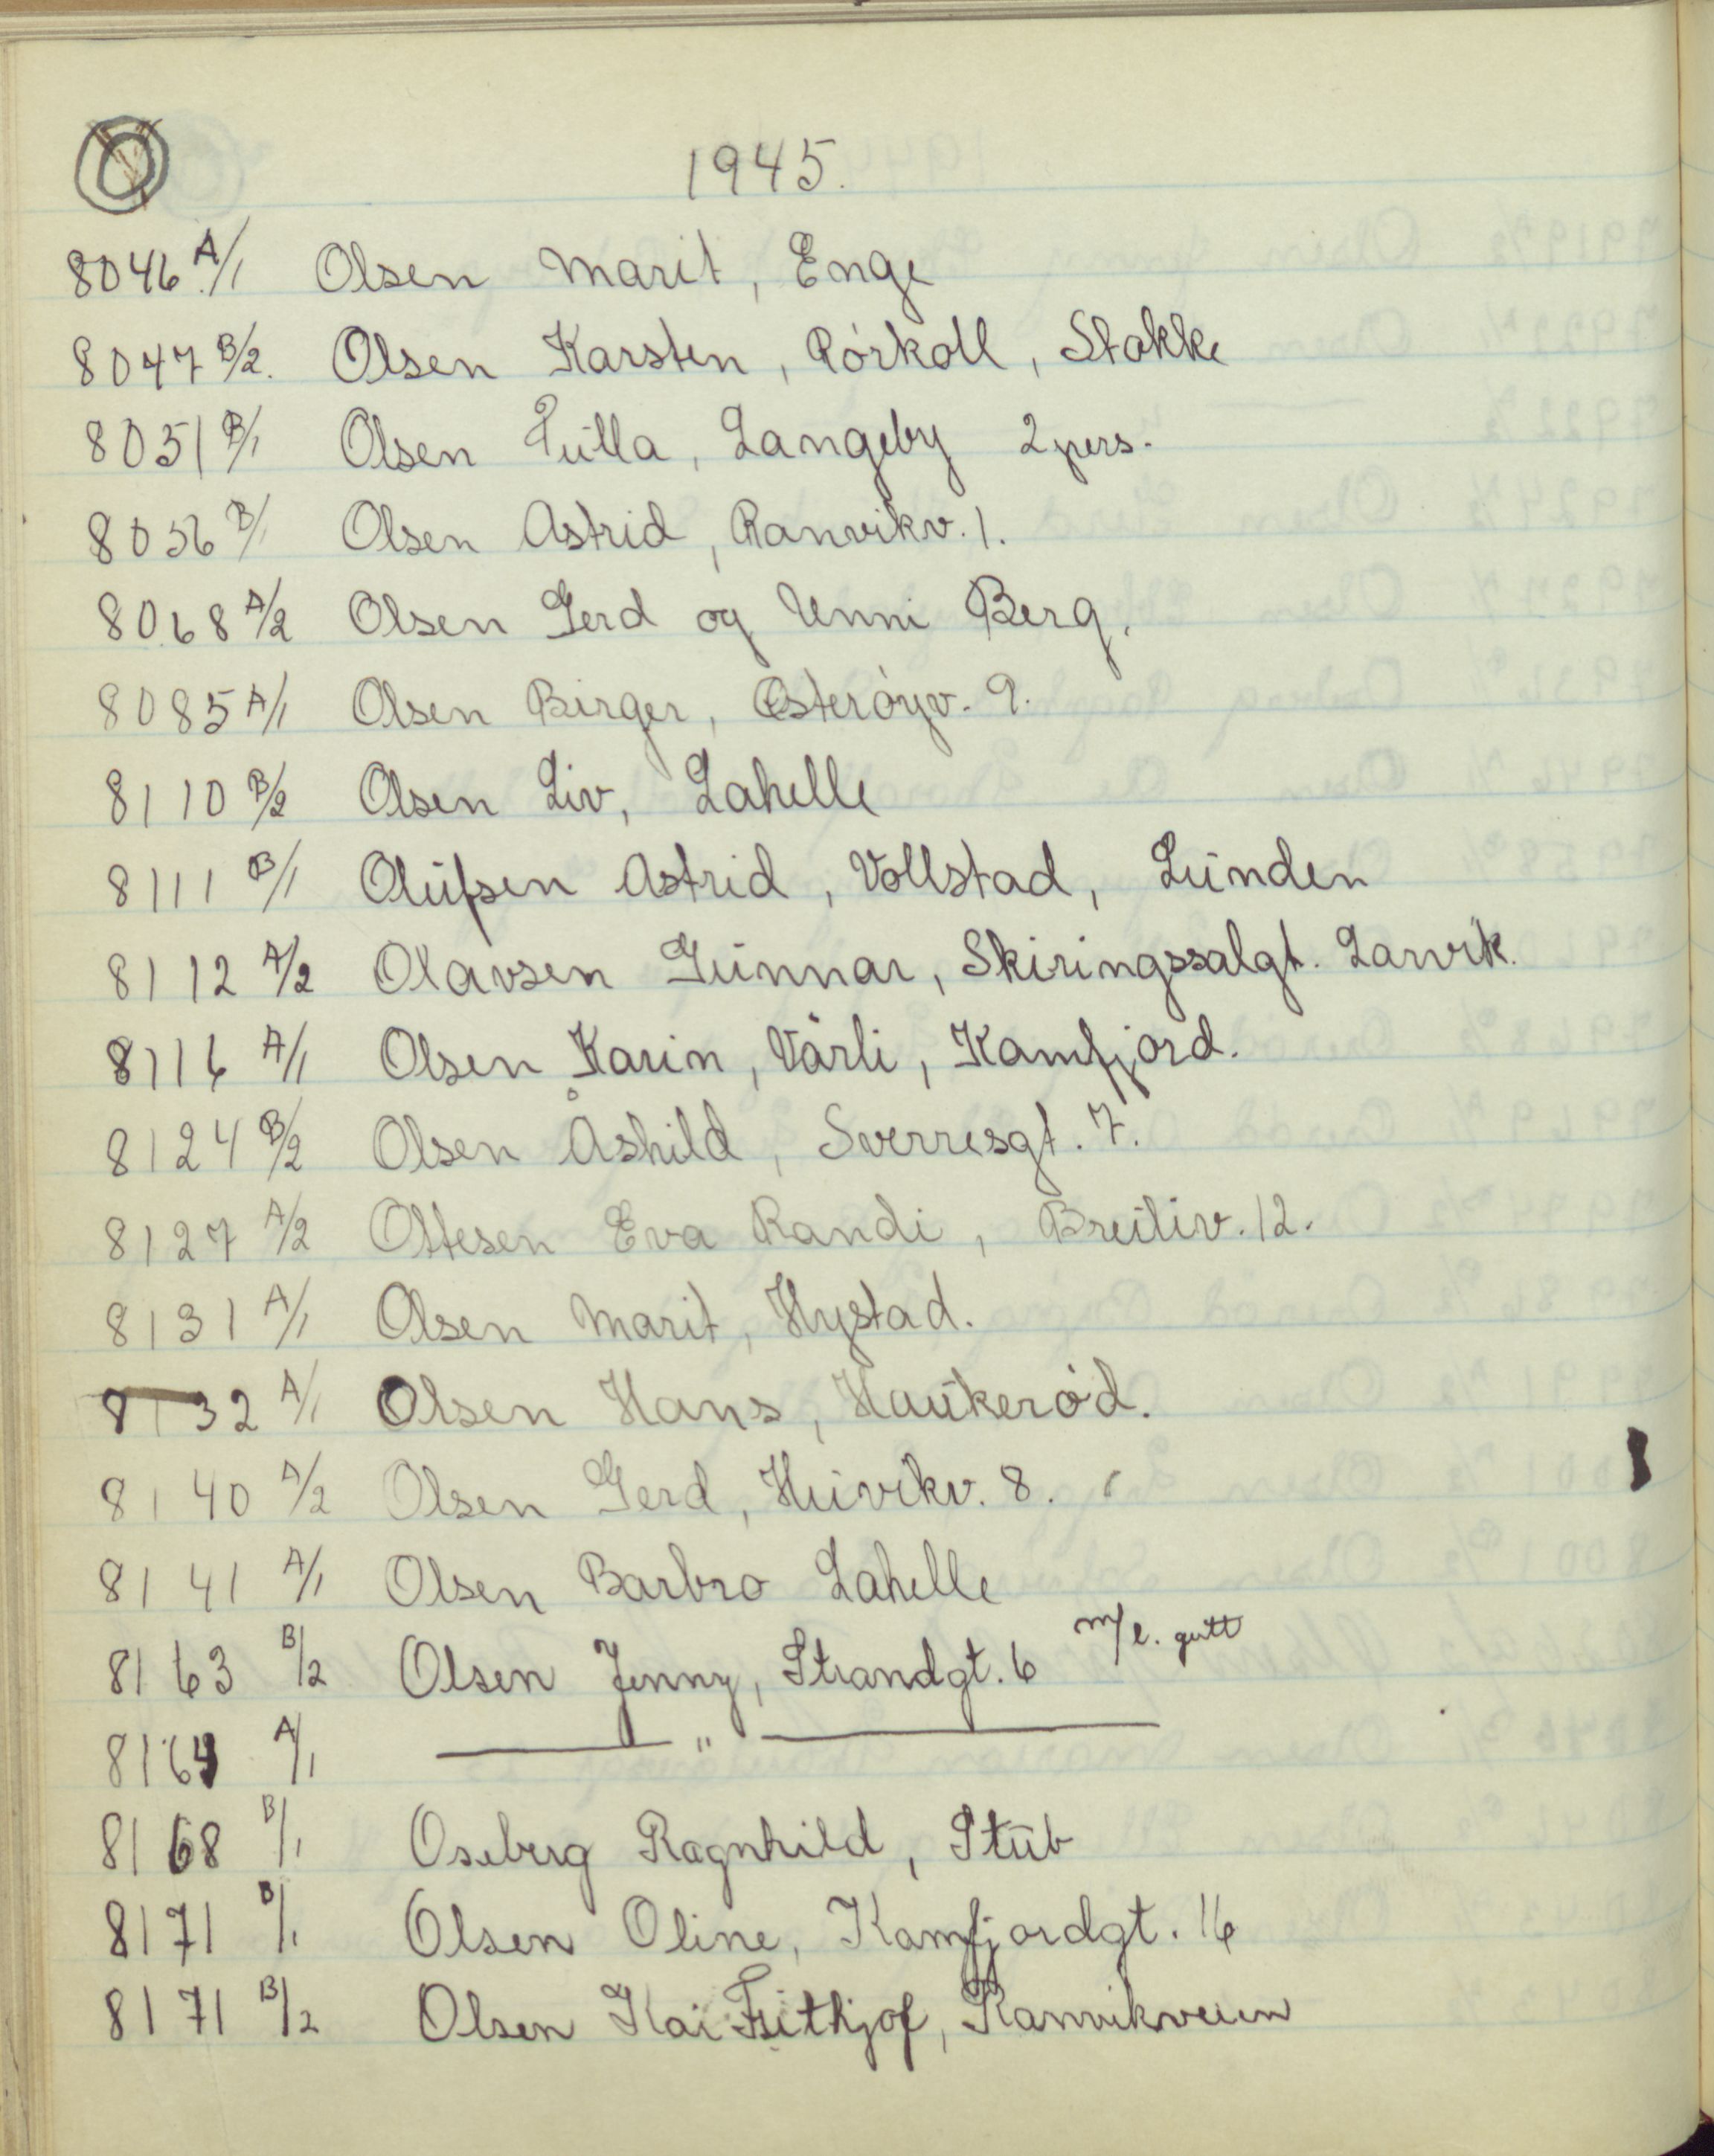 O
1945.
8046 A/1 Olsen Marit, Enge
8047 B/2. Olsen Karsten, Rórkoll, Stokke
8051 B/1 Olsen Tulla, Langeby 2 pers.
8056 B/1 Olsen Astrid, Ranvikv. 1.
8068 A/2 Olsen Gerd og Unni Berg.
8085 A/1 Olsen Birger, Østeróyv. 9.
8110 B/2 Olsen Liv, Lahelle
8111 B/1 Olufsen Astrid, Vollstad, Lunden
8112 A/2 Olavsen Gunnar, Skiringssalgt. Larvik.
8116 A/1 Olsen Karin, Vårli, Kamfjord.
8124 B/2 Olsen Åshild, Sverresgt. 7.
8127 A/2 Ottesen Eva Randi, Breiliv. 12.
8131 A/1 Olsen Marit, Hystad.
8132 A/1 Olsen Hans, Haukeród.
8140 A/2 Olsen Gerd, Huvikv. 8.
8141 A/1 Olsen Barbro Lahelle
8163 B/2 Olsen Jenny, Strandgt. 6 m/l. gutt
8164 A/1 — " —
8168 B/1 Oseberg Ragnhild, Stub
8171 B/1 Olsen Oline, Kamfjordgt. 16
8171 B/2 Olsen Kai Frithjof, Ranvikveien